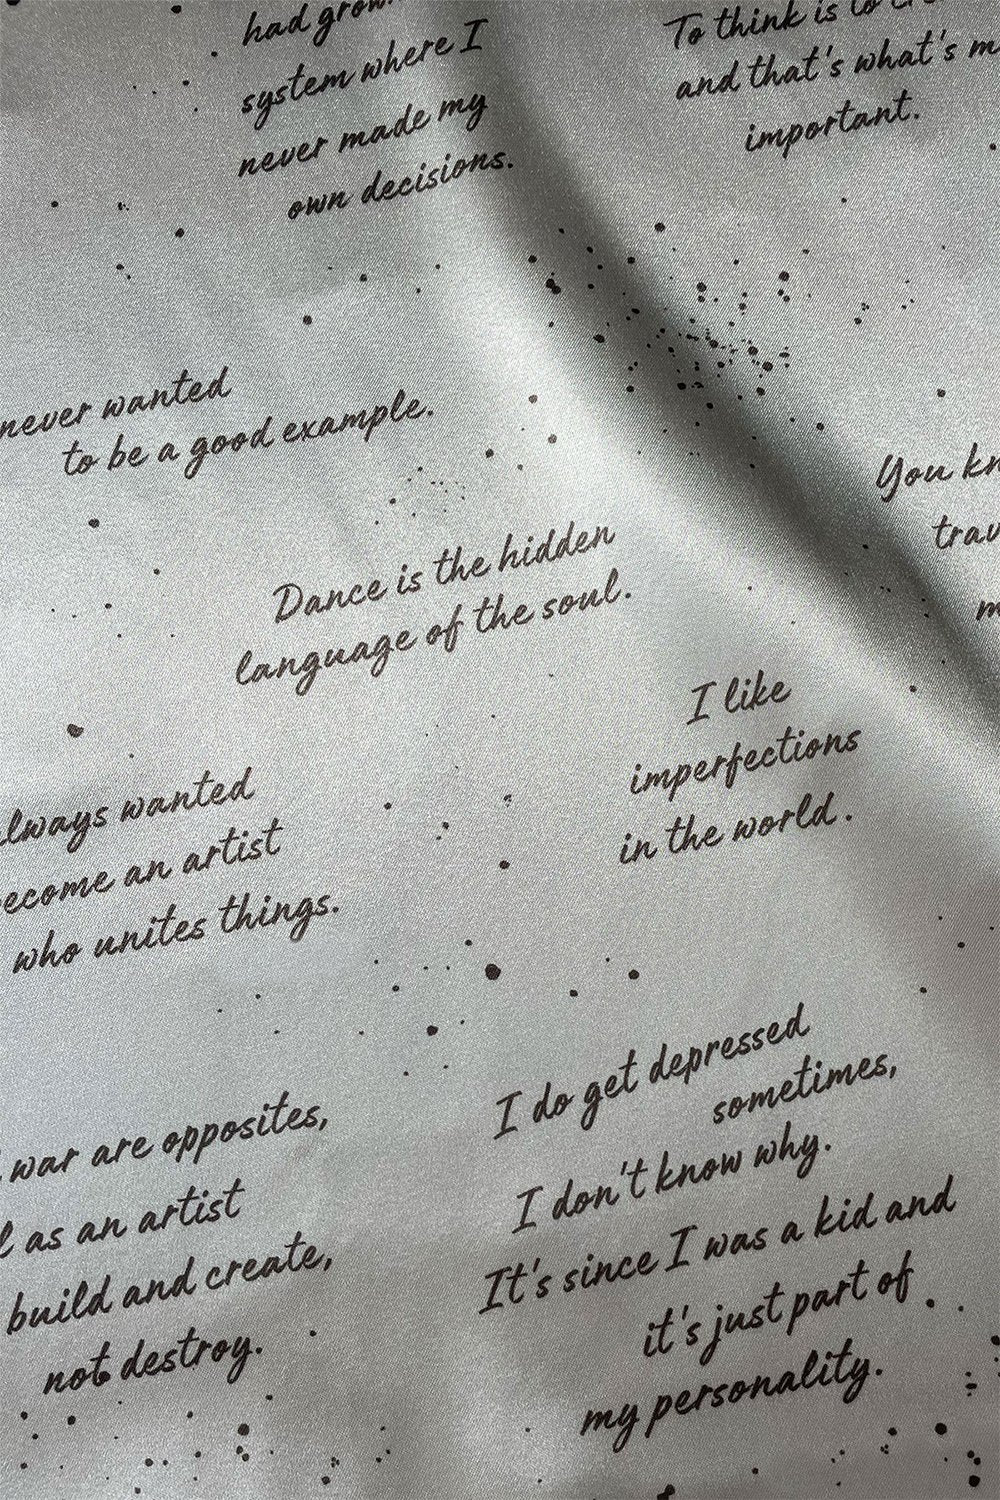 had
system where I
never made my
own decisions.
To think is to
and that's what's
important.
never wanted
to be a good example.
You
Dance is the hidden
language of the soul.
I like
imperfections
in the world.
always wanted
become an artist
who unites things.
war are opposites,
as an artist
build and create,
not destroy.
I do get depressed
sometimes,
I don't know why.
It's since I was a kid and
it's just part of
my personality.